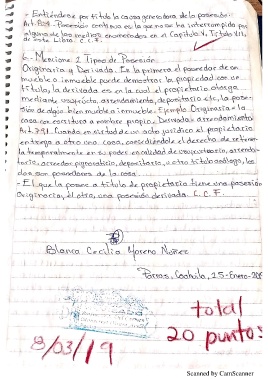 - Entiéndese por título la causa generadora de la posesión.
Art. 803. Posesión continua es la que no se ha interrumpido por
alguno de los medios enumerados en el Capítulo V, Título VII,
de este Libro. C.C.F.
6.- Mencione 2 tipos de Posesión
Originaria y Derivada. Es la primera el poseedor de un
mueble o inmueble puede demostrar la propiedad con un
título, la derivada es en la cual el propietario otorga
mediante usufructo, arrendamiento, depositario etc, la pose-
sión de algún bien mueble o inmueble. Ejemplo Originaria = la
casa con escritura a nombre propio. Derivada = arrendamiento
Art. 791. Cuando en virtud de un acto jurídico el propietario
entrega a otro una cosa, concediéndole el derecho de retener-
la temporalmente en su poder en calidad de usufructuario, arrenda-
tario, acreedor pignoraticio, depositario, u otro título análogo, los
dos son poseedores de la cosa.
- El que la posee a título de propietario tiene una posesión
originaria, el otro, una posesión derivada. C.C.F.
Blanca Cecilia Moreno Núñez
Parras, Coahuila, 25-Enero-
total
20 puntos
8/03/19
Scanned by CamScanner